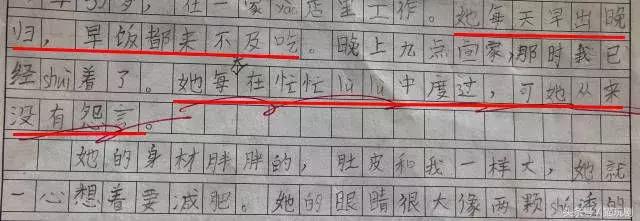 在一家 店里工作。她每天早出晚
归，早饭都来不及吃。晚上九点回家，那时我已
经shui着了。她每在忙忙lu lu中度过，可她从来
没有怨言。
她的身材胖胖的，肚皮和我一样大，她就
一心想着要减肥。她的眼睛很大像两颗shui透的
头条号